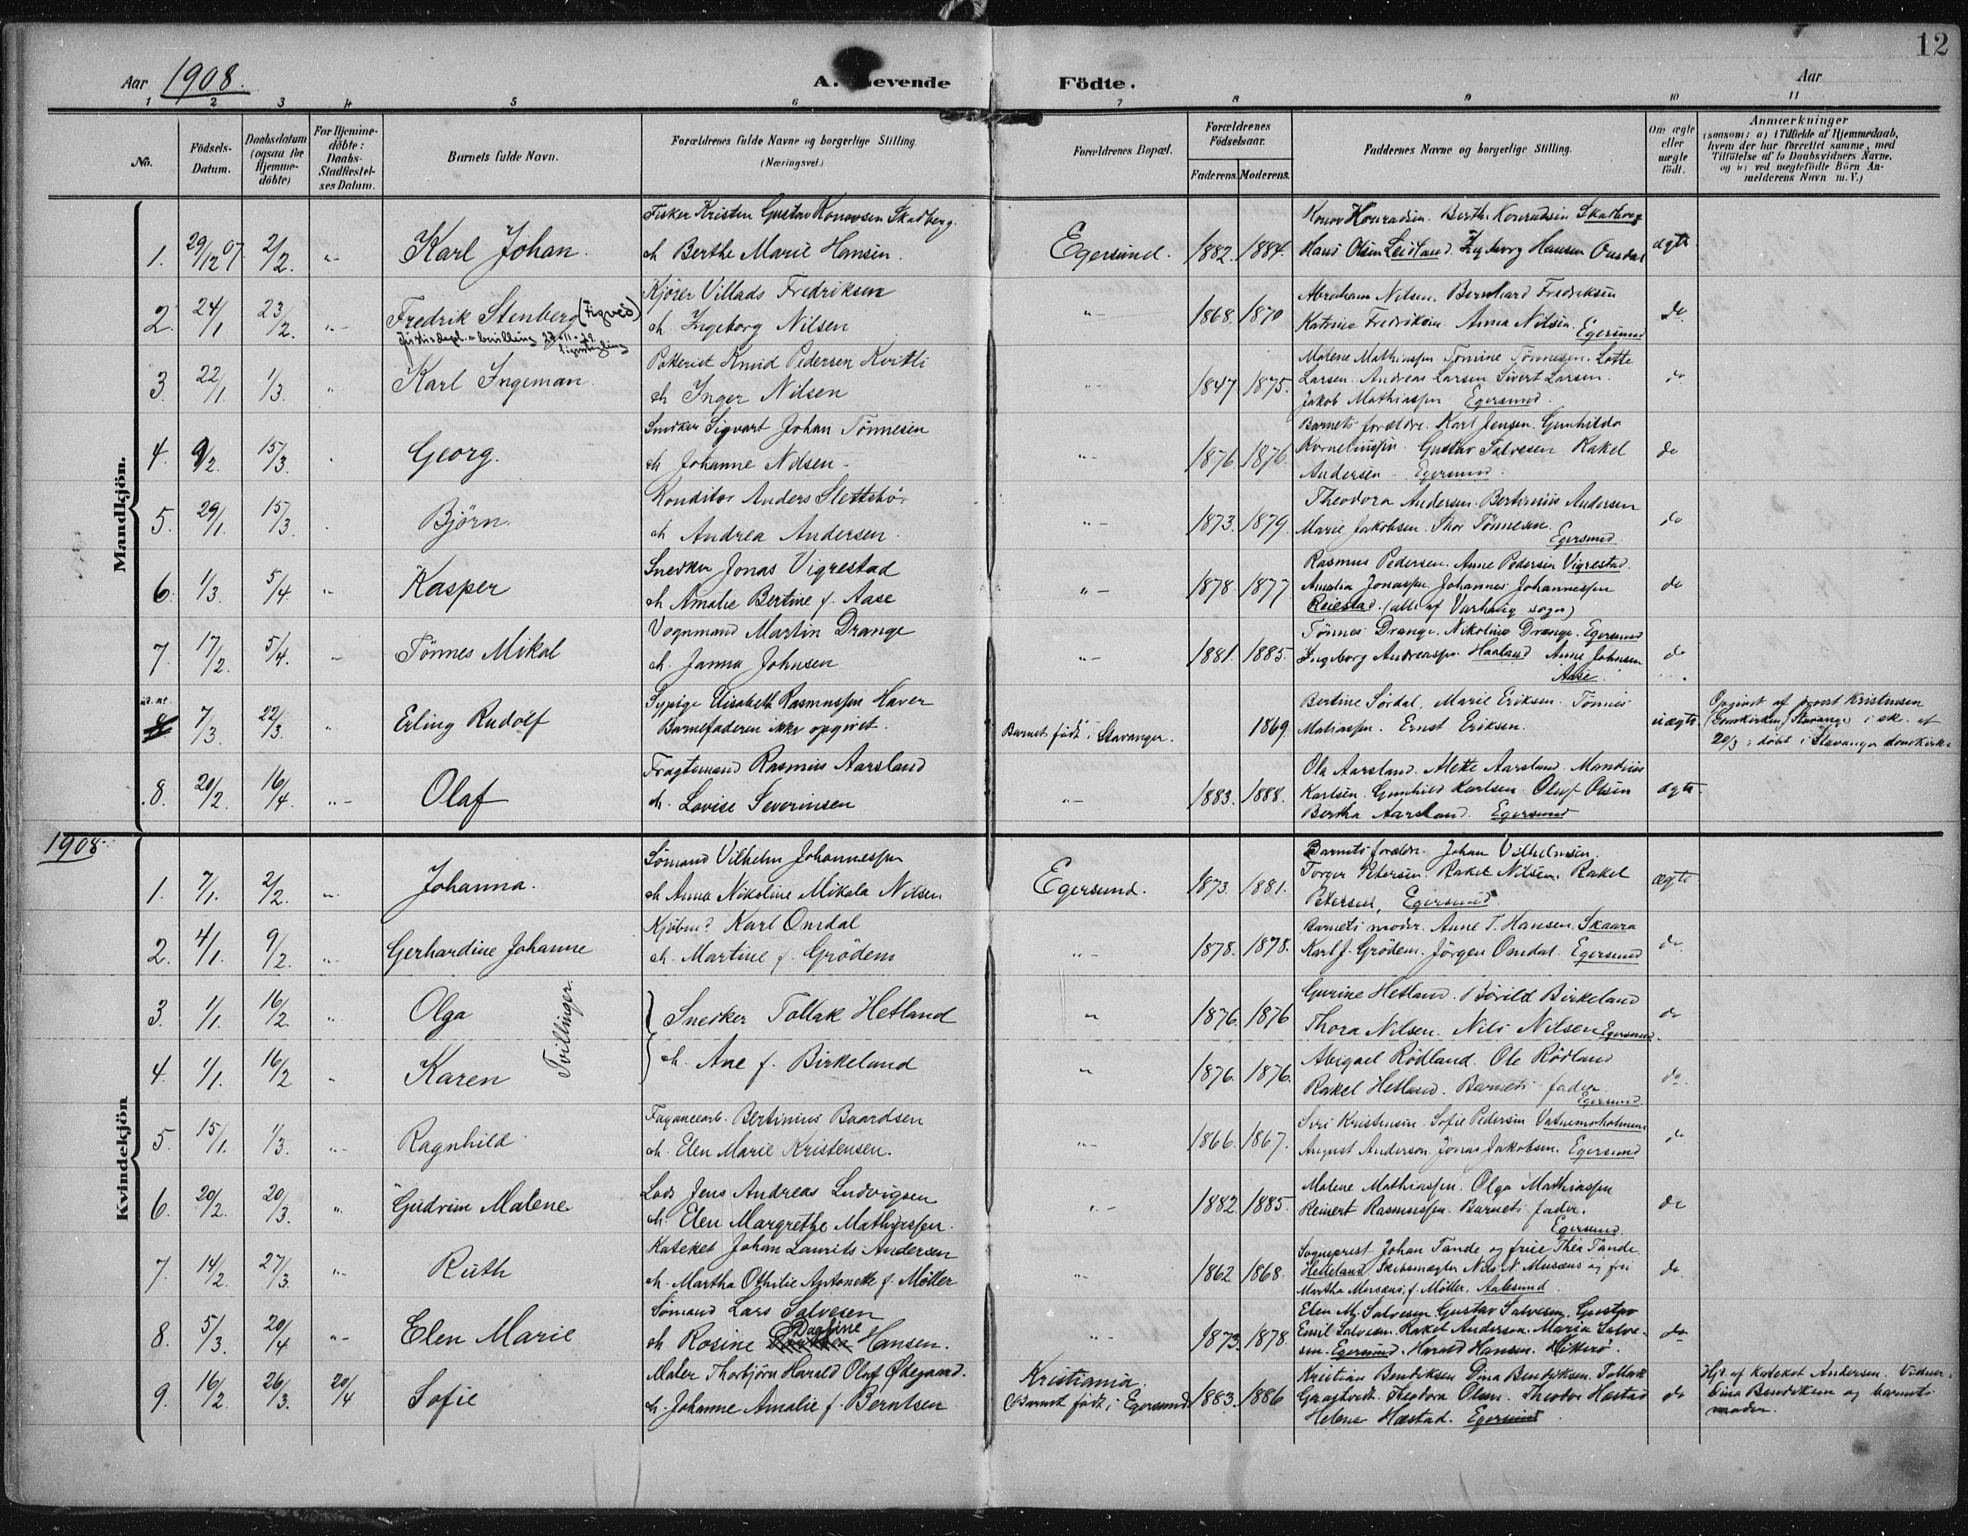 12
Aar 1908. A. Levende Födte. Aar
1 2 3 4 5 6 7 8 9 10 11
No. Födsels-Datum. Daabsdatum (ogsaa for Hjemmedöbte) For Hjemmedöbte: Daabs-Stadfæstelses Datum. Barnets fulde Navn. Forældrenes fulde Navne og borgerlige Stilling (Næringsvei.) Forældrenes Bopæl. Forældrenes Födselsaar. Faderens. Moderens. Faddernes Navne og borgerlige Stilling. Om ægte eller uægte födt. Anmærkninger (saasom: a) i Tilfælde af Hjemmedaab, hvem der har forrettet samme, med Tilföielse af to Daabsvidners Navne, og b) ved uægtefödte Börn Anmelderens Navn m. V.)
Mandkjön.
Fisker Kristen Gustav Konovsen Skadberg. Konov Konradsen. Berthe Konradsen Skadberg
1. 29/12 07. 2/2. "- Karl Johan. h Berthe Marie Hansen. Egersund. 1882. 1884. Hans Olsen Leidland. Ingeborg Hansen Omdal ægte
Kjører Villads Fredriksen Abraham Nilsen. Bernhard Fredriksen
2. 24/1 23/2. "- Fredrik Stenberg (Tigvéd) h. Ingeborg Nilsen "- 1868. 1870 Katrine Fredriksen Anna Nilsen. Egersund do
Justisdept.s bevilling 27-11-29
Potterist Knud Pedersen Kvitli Malene Mathiassen Tomine Tönnesen. Lotte
3. 22/1. 1/3. " Karl Ingeman. h Inger Nilsen "- 1847. 1875. Larsen. Andreas Larsen Sivert Larsen. do
Jakob Mathiassen Egersund.
Snedker Sigvart Johan Tönnesen Barnets forældre. Karl Jensen. Gunhilda
4. 9/2. 15/3. Georg. h Johanne Nilsen - "- 1876. 1876. Kornelinssen. Gustav Salvesen Rakel do
Andersen - Egersund.
Konditor Anders Slettebö. Theodora Andersen. Bertinius Andersen
5. 29/1. 15/3. Björn. h Andrea Andersen. "- 1873. 1879. Marie Jakobsen. Thor Tönnesen. Egersund. do
Snedker Jonas Vigrestad Rasmus Pedersen. Anne Pedersen Vigrestad.
6. 1/3. 5/4. "- Kasper h Amalie Bertine f. Aase "- 1878. 1877 Amalia Jonassen. Johannes Johannessen do
Reiestad. (alle af Varhaug sogn)
Vognmand Martin Drange Tönnes Drange. Nikoline Drange. Egersund
7. 17/2. 5/4. "- Tönnes Mikal h. Janna Johnsen "- 1881. 1885. Ingeborg Andreassen Haaland Anne Johnsen Aase. do
Sypige Elisabeth Rasmussen Haver Bertine Sördal, Marie Eriksen. Tönnes Opgivet af provst Kristensen
7/3. 22/3. Erling Rudolf Barnefaderen ikke opgivet. Barnet født i Stavanger. 1869 Mathiassen. Ernst Eriksen. uægte (Domkirken) Stavanger i sk. af
20/3; døbt i Stavanger domkirke
Fragtemand Rasmus Aarsland Ola Aarsland. Mette Aarsland. Mandius
8. 20/2. 16/4. "- Olaf h. Lovise Severinsen "- 1883. 1888. Karlsen. Gunhild Karlsen. Oluf Olsen ægte.
Bertha Aarsland. Egersund
1908.
Kvindekjön
Sömand Vilhelm Johannessen Barnets forældre. Johan Vilhelmsen.
1. 7/1. 2/2. "- Johanna. h Anna Nikoline Mikala Nilsen Egersund. 1873. 1881. Torger Petersen. Rakel Nilsen. Rakel ægte
Petersen, Egersund.
Kjøbmd. Karl Omdal Barnets moder. Anne T. Hansen. Skaara
2. 4/1. 9/2. "- Gerhardine Johanne h. Martine f. Grödem "- 1878. 1878. Karl J. Grödem. Jörgen Omdal. Egersund do
Gurine Hetland. Börild Birkeland
3. 1/1. 16/2. " Olga Tvillinger. Snedker Tollak Hetland " 1876. 1876 Thora Nilsen. Nils Nilsen Egersund. do
4. 1/1. 16/2 " Karen h. Ane f. Birkeland " 1876. 1876. Abigael Rödland. Ole Rödland
Rakel Hetland. Barnets fader. Egersund. do
Fayancearb. Bertinius Baardsen Siri Kristensen. Sofie Pedersen Vatnemoholmen
5. 15/1. 1/3. "- Ragnhild h. Elen Marie Kristensen. "- 1866. 1867. August Anderson. Jonas Jakobsen. Egersund do
Lods Jens Andreas Ludvigsen Malene Mathiassen. Olga Mathiassen
6. 20/2. 20/3. " Gudrun Malene h. Elen Margrethe Mathiassen. "- 1882. 1885. Reinert Rasmussen. Barnets fader. Egersund do
Kateket Johan Laurits Andersen Sogneprest Johan Tande og frue Thea Tande
7. 14/2. 27/3. "- Ruth h. Martha Othilie Antonette f. Møller " 1862 1868. Helleland. Skibsmægler Nils N. Musæus og fru do
Martha Musæus f. Møller. Aalesund
Sömand Lars Salvesen Elen M. Salvesen. Gustav Salvesen. Gustav
8. 5/3. 20/4 "- Elen Marie h Rosine Dagfine Hansen. "- 1873. 1878. Emil Salvesen. Rakel Anderson. Maria Salve- do
sen. Egersund. Harald Hansen. Hitterö.
Maler Thorbjörn Harald Olaf Ødegaard. Kristiania. Kristian Bendiksen Dina Bendiksen. Tollak Hjd. af kateket Andersen. Vidner:
9. 16/2. 26/3. 20/4 Sofie h. Johanne Amalie f. Berntsen (Barnet født i Egersund) 1883. 1886 Grastveit. Theodora Olsen. Theodor Hæstad do Dina Bendiksen og barnets
Helene Hæstad. Egersund moder.